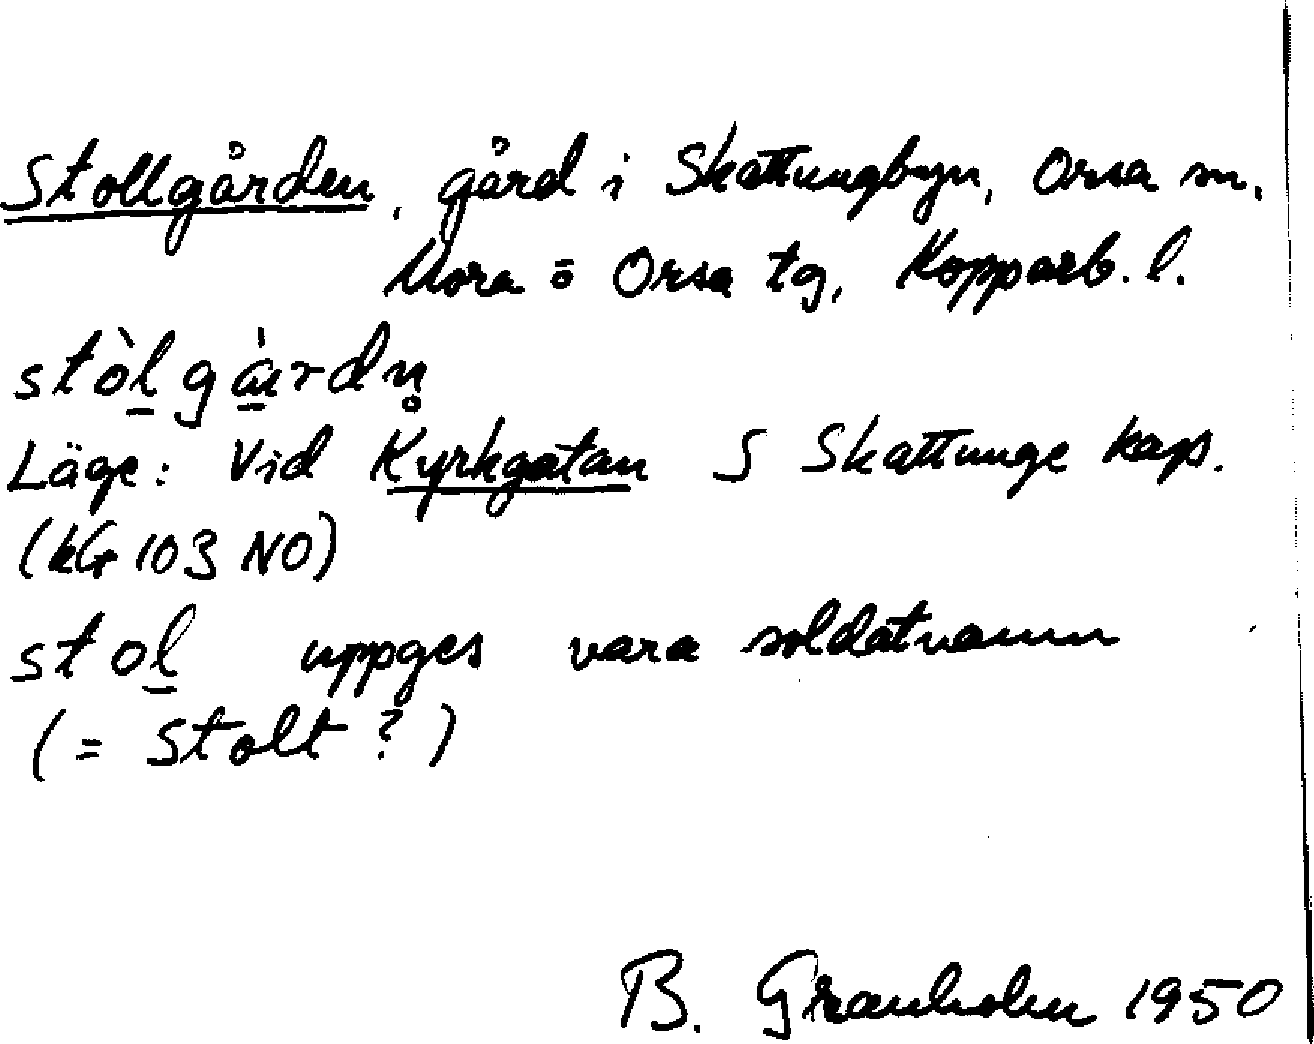 Stollgården, gård i Skattungbyn, Orsa sn,
Mora o Orsa tg, Kopparb. l.
stòl̠gà̠rdn̥
Läge: Vid Kyrkgatan S Skattunge kap.
(kG 103 NO)
stol̠ uppges vara soldatnamn
(= Stolt?)
B. Granholm 1950